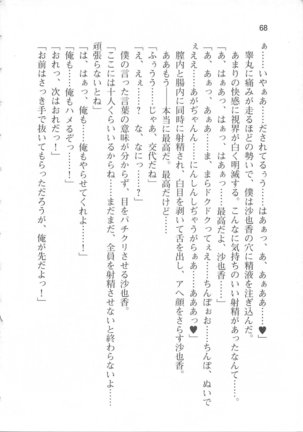 68
ぁ……いやぁあ……だされてるぅう……はぁっ、あ、あぁああ……♥」
　睾丸に痛みが走るほどの勢いで、僕は沙也香の穴に精液を注ぎ込んだ。
　あまりの快感に視界が白く明滅する。こんなに気持ちのいい射精があったなんて……。
「あ、はぁぁっ、はぁっ、はぁっ……最高だよ、沙也香」
「あ、あぁ……あっ……ま、まらドクドクってぇえ……ちんぽぉお……ちんぽ、ぬいで
ぇええ……あがぢゃんん……にんしんしちゃうがらぁぁ……あぁあああ……♥」
「ああもう……本当に最高だ。最高だけど……」
　膣内と腸内に同時に射精され、白目を剥いて舌を出し、アヘ顔をさらす沙也香。
「ふぅうう……じゃあ、交代だね」
「え、ええ……？　な、なにっ……？」
　僕の言った言葉の意味が分からず、目をパチクリさせる沙也香。
「ここには十人くらいいるからね……まだまだ、全員を射精させないと終わらないよ……
頑張らないとね」
「は、はぁっ、俺も、俺もやらせてくれよ……！」
「俺も……俺もハメるぞっ……！」
「おれっ、次はおれだっ！」
「お前はさっき手で抜いてもらっただろうが、俺が先だよっ！」